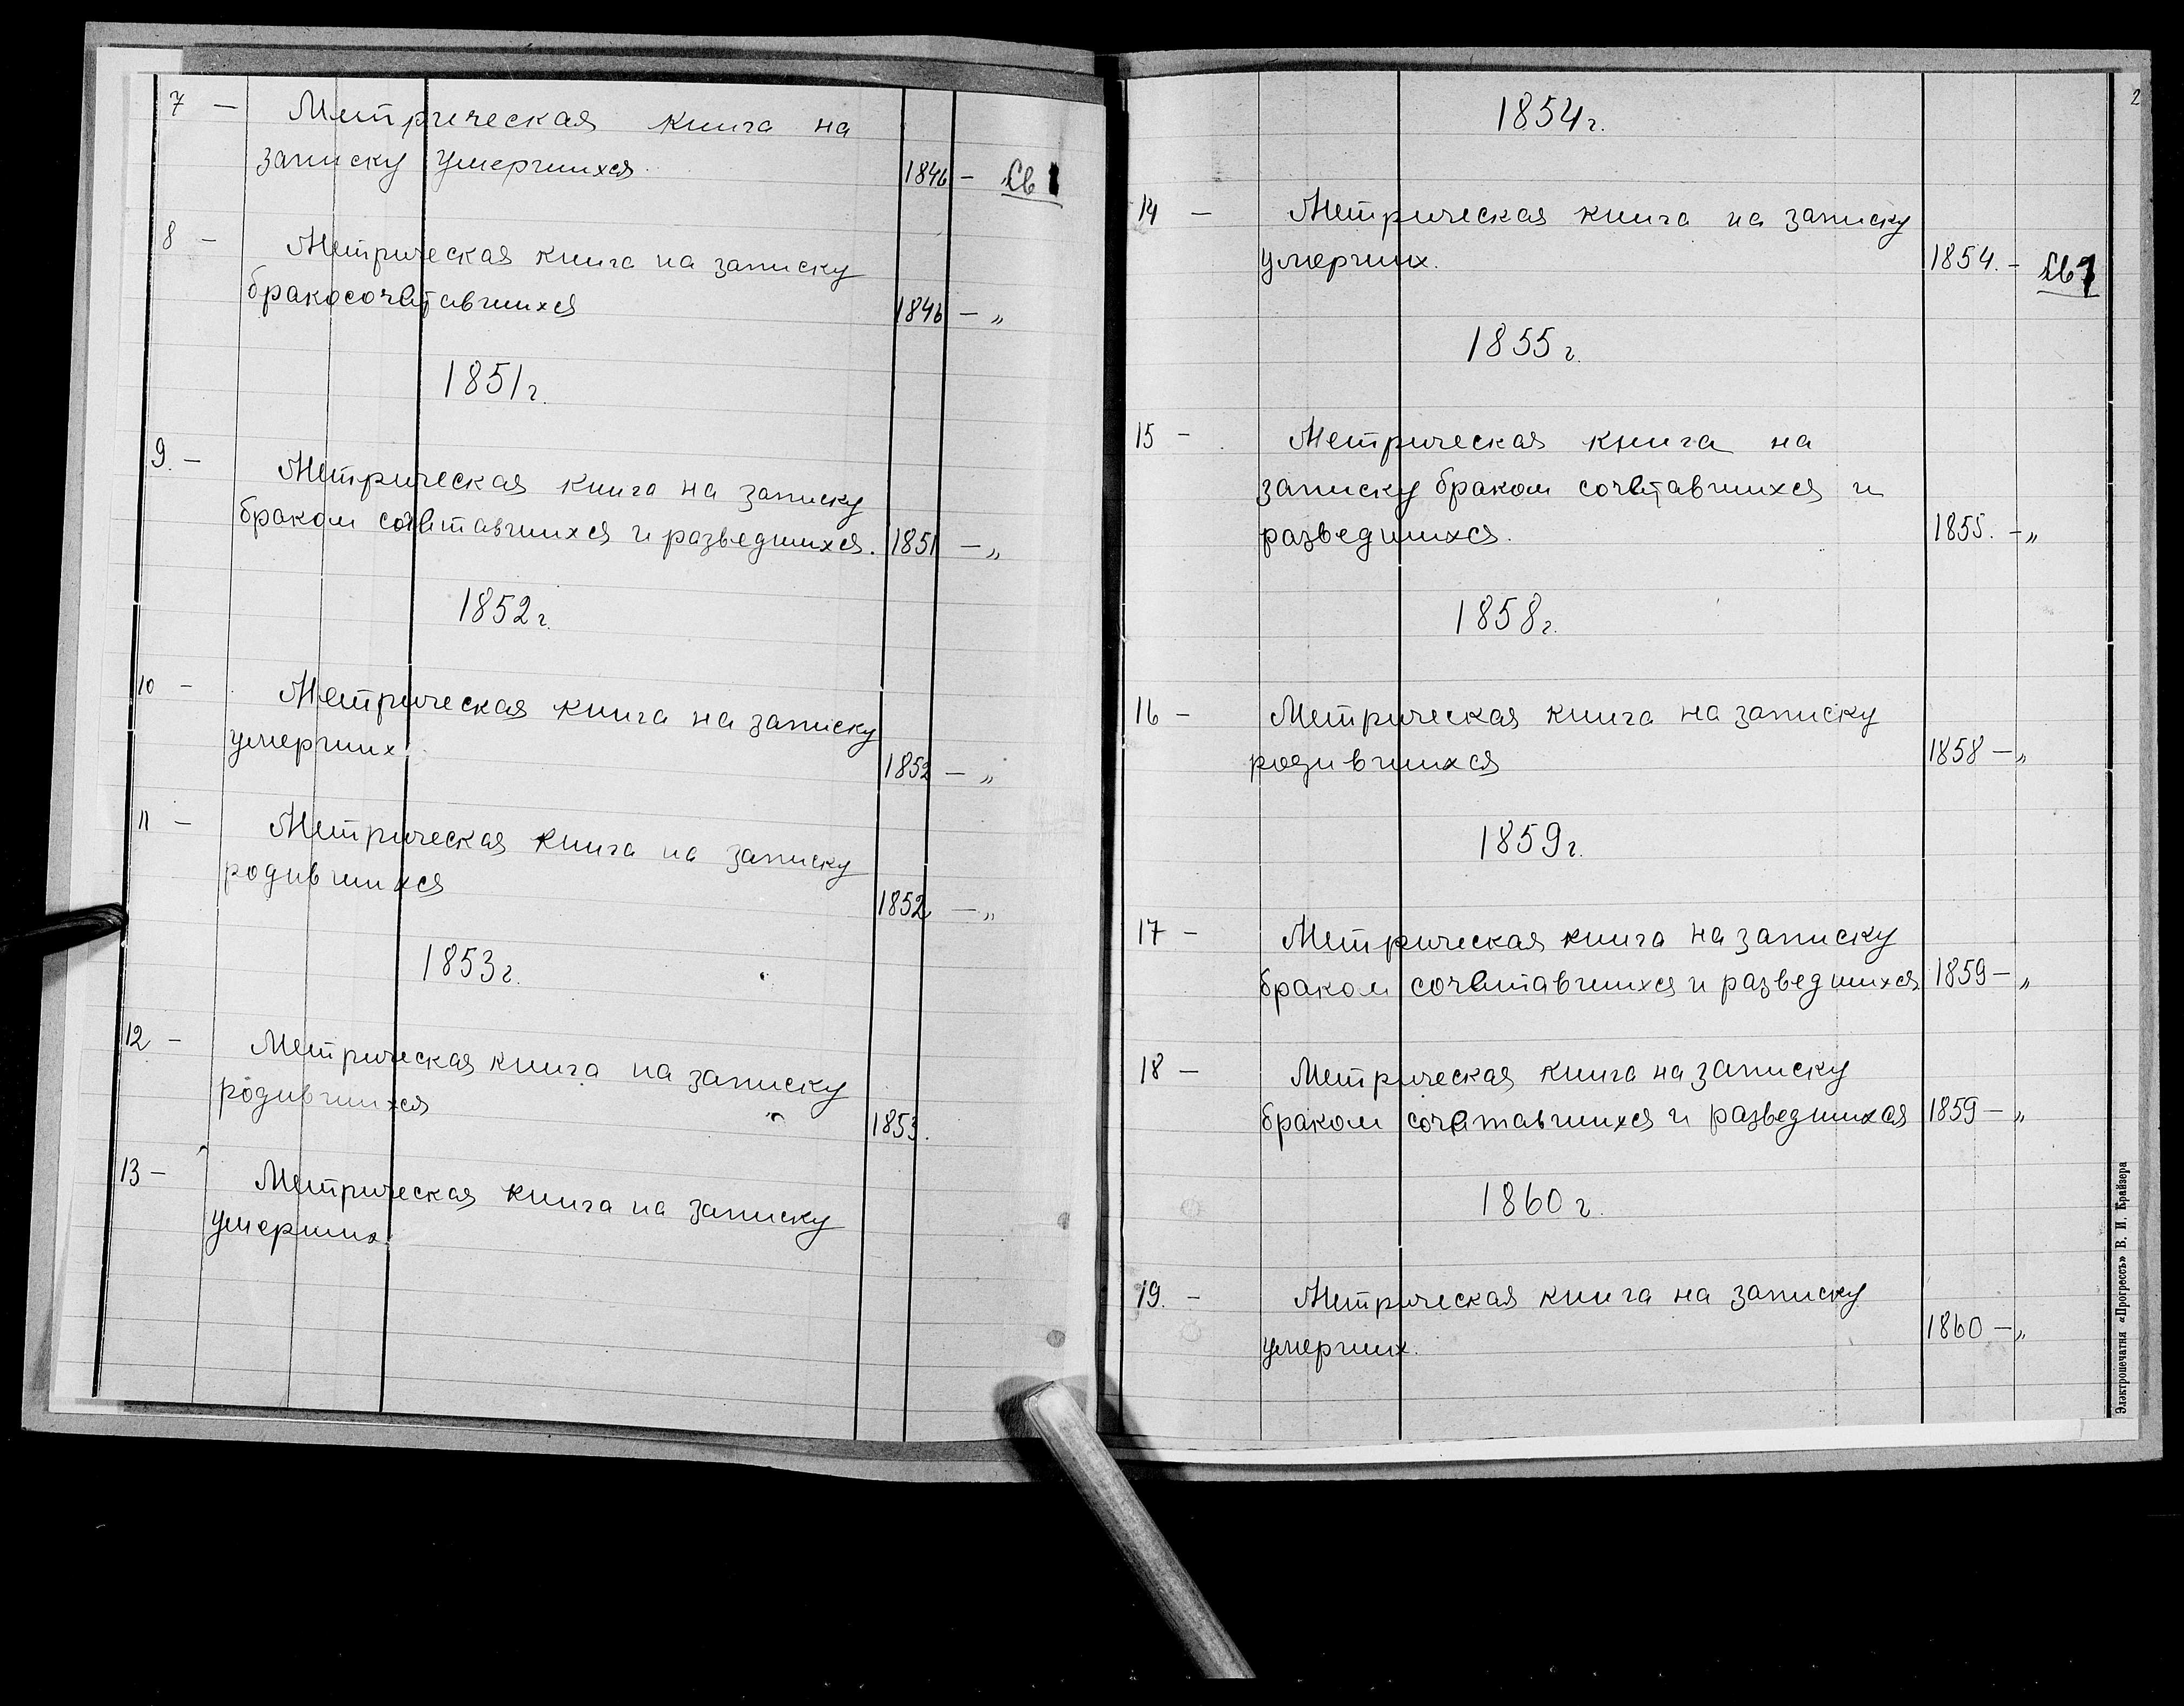 7 — Метрическая книга на
записку умерших<ся. 1846 — Св 1
8 — Метрическая книга на записку
бракосочетавшихся 1846 — „
1851 г.
9. — Метрическая книга на записку
браком сочетавшихся и разведшихся. 1851 — „
1852 г.
10 — Метрическая книга на записку
умерших. 1852 — „
11 — Метрическая книга на записку
родившихся 1852 — „
1853 г.
12 — Метрическая книга на записку
родившихся 1853.
13 — Метрическая книга на записку
умерших.
2
1854 г.
14 — Метрическая книга на записку
умерших. 1854. — Св 1
1855 г.
15 — Метрическая книга на
записку браком сочетавшихся и
разведшихся. 1855. — „
1858 г.
16 — Метрическая книга на записку
родившихся 1858 — „
1859 г.
17 — Метрическая книга на записку
браком сочетавшихся и разведшихся 1859 — „
18 — Метрическая книга на записку
браком сочетавшихся и разведшихся 1859 — „
1860 г.
19. — Метрическая книга на записку
умерших. 1860 — „
Электропечатня «Прогрессъ» В. И. Крайзера